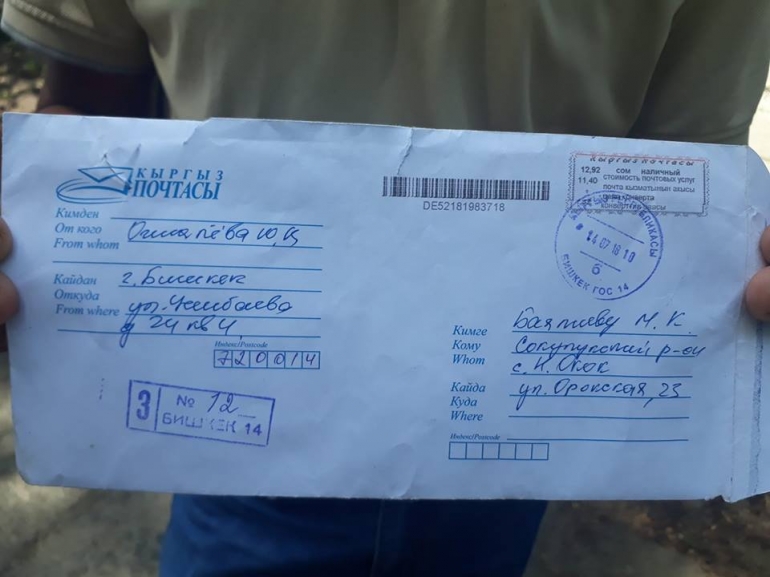 КЫРГЫЗ
ПОЧТАСЫ
Кимден
От кого
From whom
Кайдан г. Бишкек
Откуда
From where ул.
д 24 кв 4
Индекс/Postcode
720014
З № 12
БИШКЕК 14
DE52181983718
Кыргыз почтасы
12,92 сом наличный
11,40 стоимость почтовых услуг
почта кызматынын акысы
БИШКЕК ГОС 14
14 07 18 10
б
Кимге Баятиеву М. К.
Кому р-он
Whom с. Н.
Кайда ул. 23
Куда
Where
Индекс/Postcode